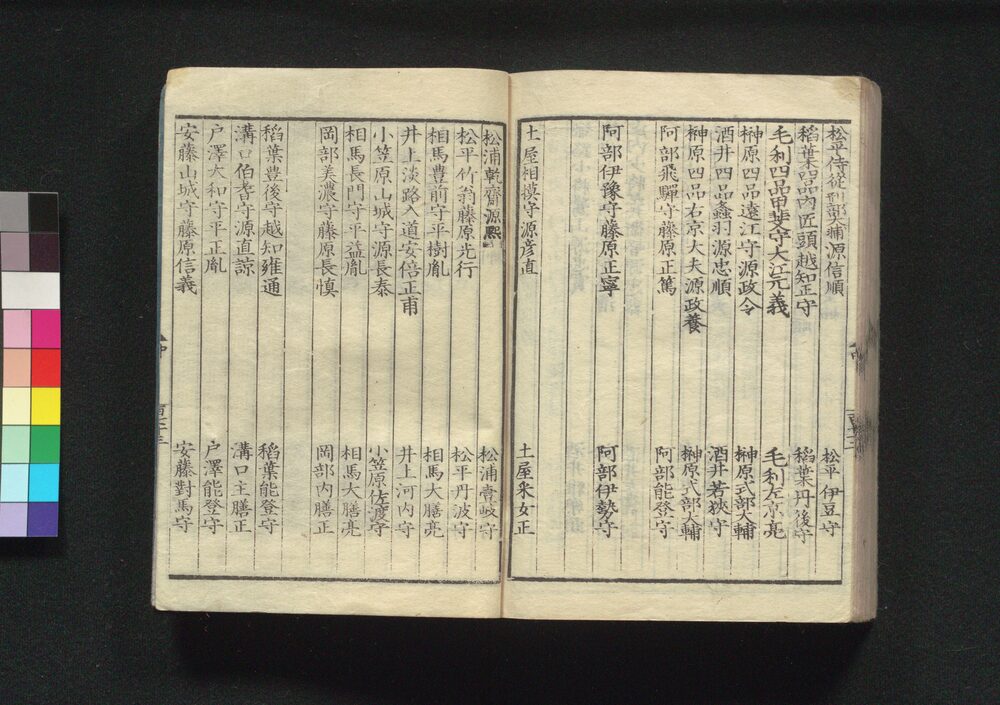 松平侍従刑部大輔源信順　松平伊豆守
稻葉四品内匠頭越知正守　稻葉丹後守
毛利四品甲斐守大江元義　毛利左京亮
榊原四品遠江守源政令　榊原式部大輔
酒井四品蠡羽源忠順　酒井若狹守
榊原四品右京大夫源政養　榊原式部大輔
阿部飛驒守藤原正篤　阿部能登守
阿部伊豫守藤原正寧　阿部伊勢守
土屋相摸守源彦直　土屋釆女正
松浦乾齋源熈　松浦壹岐守
松平竹翁藤原光行　松平丹波守
相馬豊前守平樹胤　相馬大膳亮
井上淡路入道安倍正甫　井上河内守
小笠原山城守源長泰　小笠原佐渡守
相馬長門守平益胤　相馬大膳亮
岡部美濃守藤原長慎　岡部内膳正
稻葉豊後守越知雍通　稻葉能登守
溝口伯耆守源直諒　溝口主膳正
户澤大和守平正胤　户澤能登守
安藤山城守藤原信義　安藤對馬守